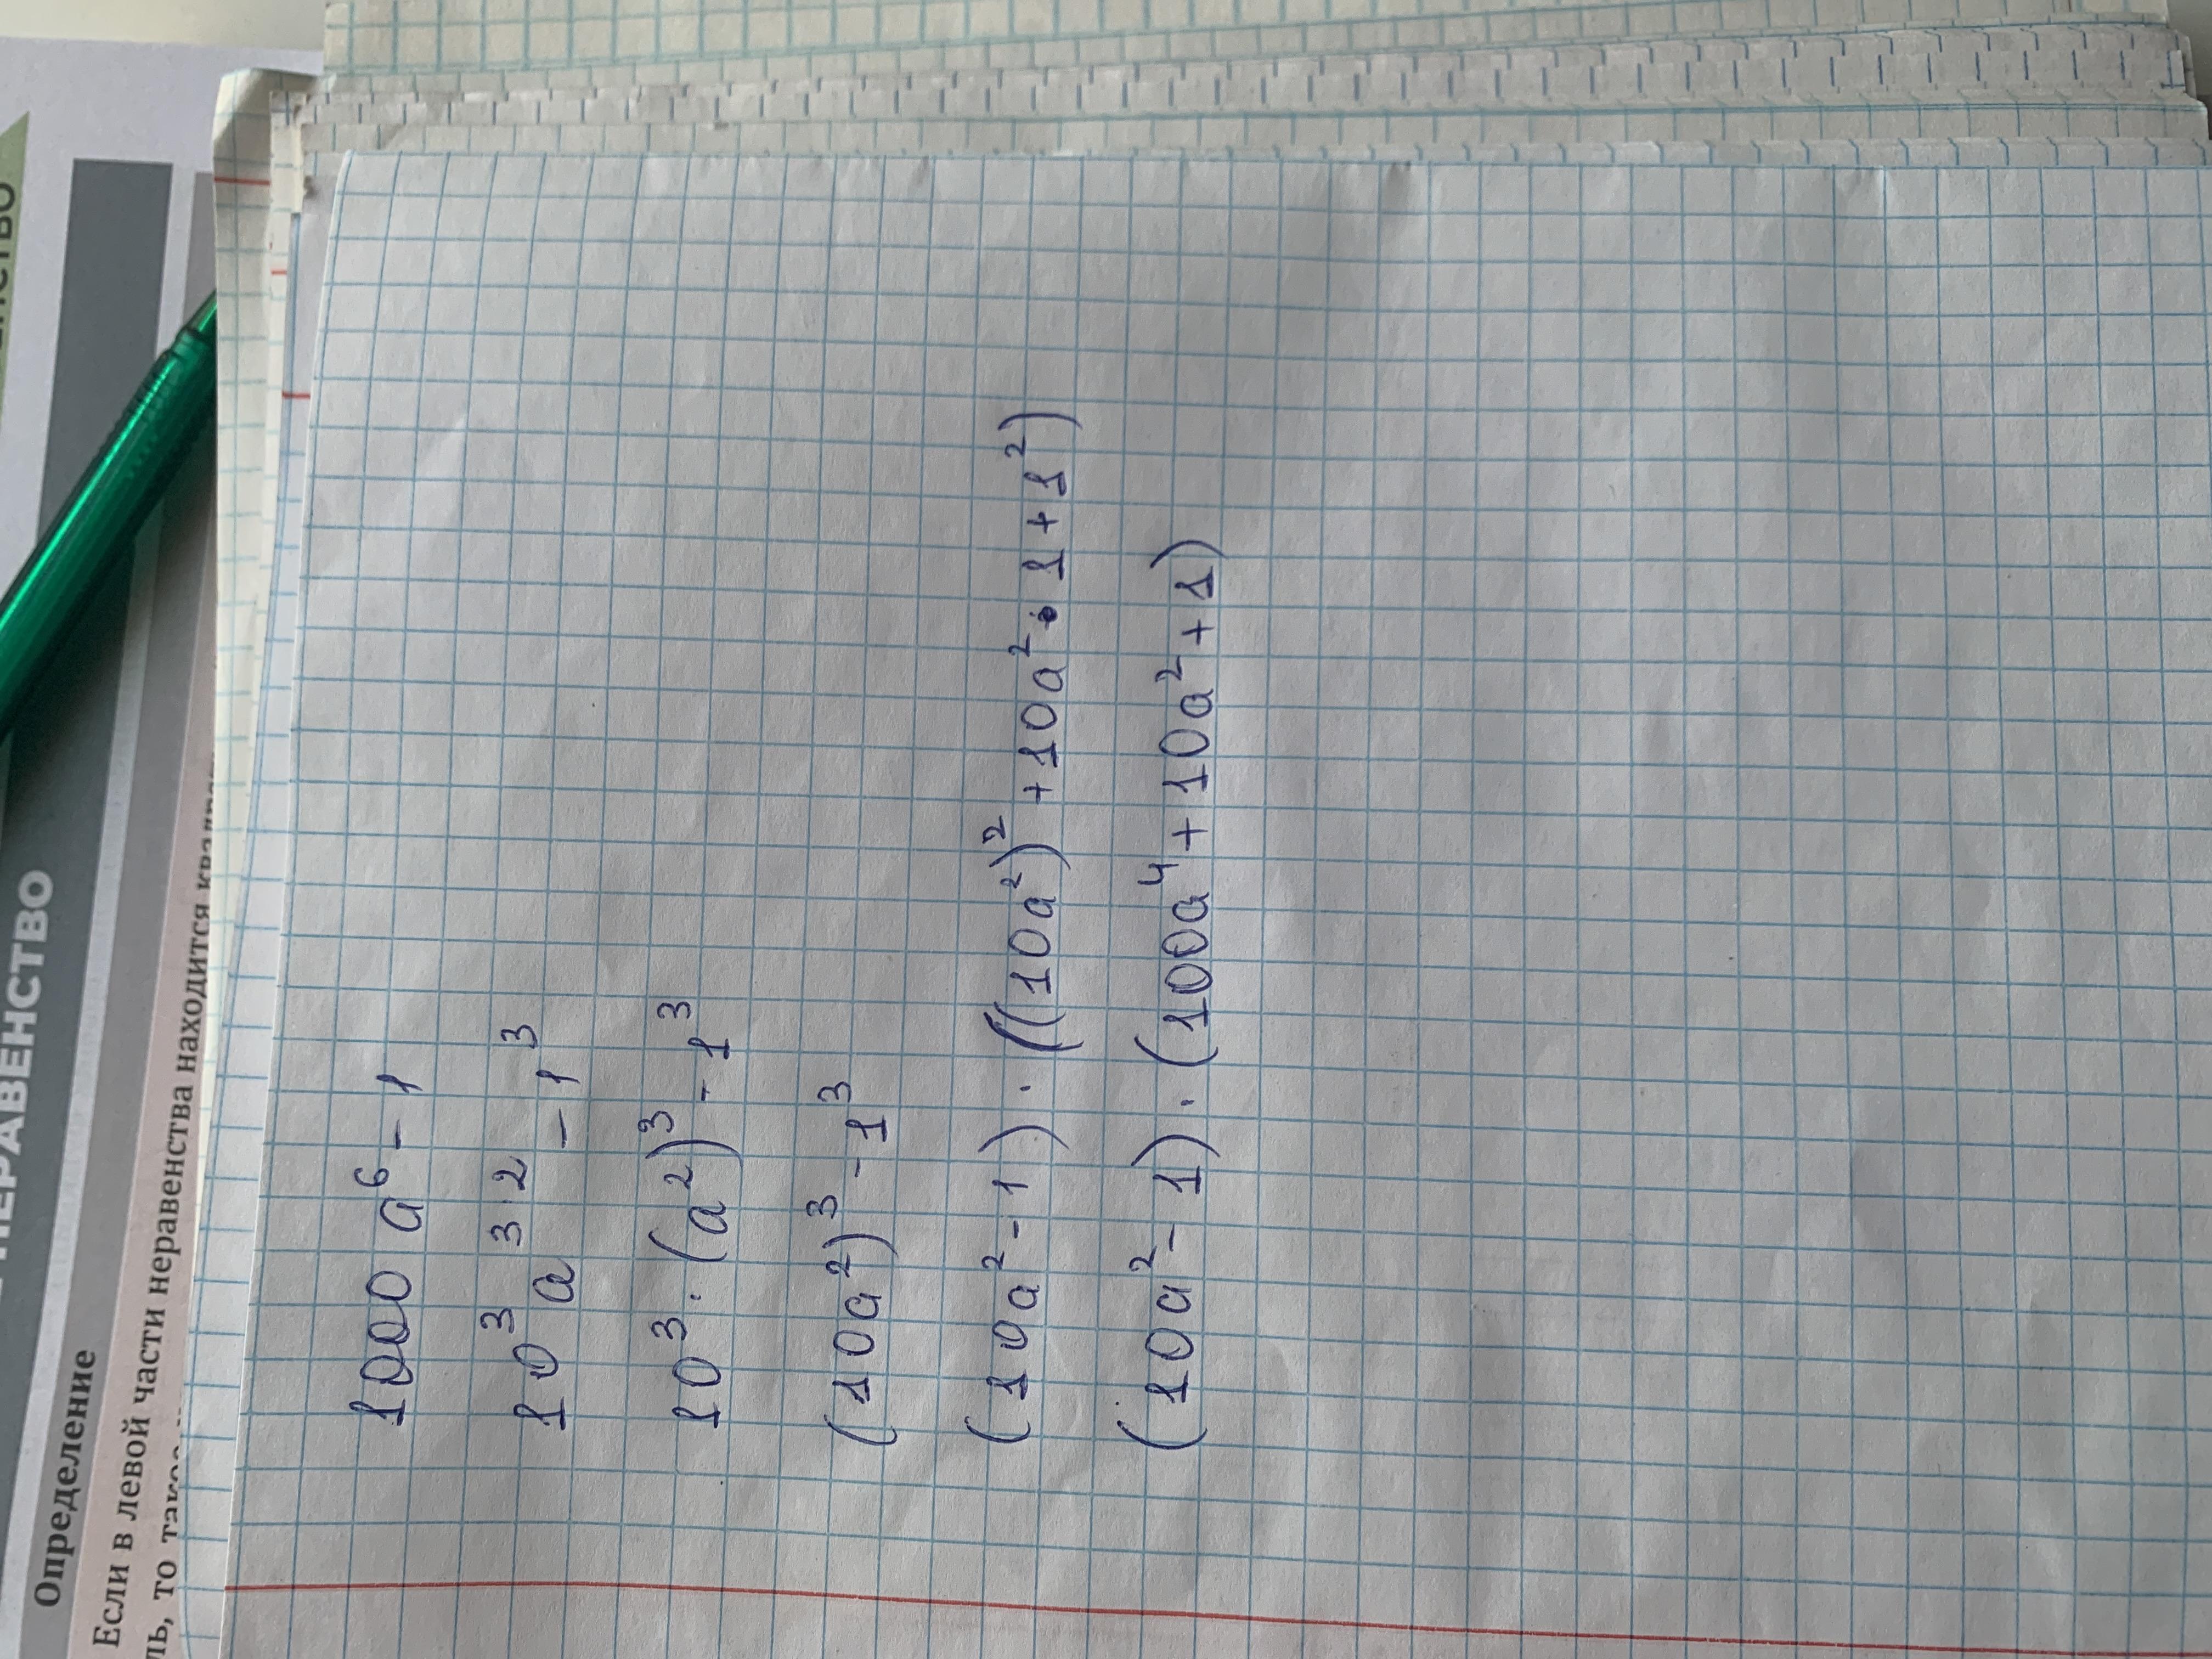 НЕРАВЕНСТВО
Определение
Если в левой части неравенства находится
ль, то
1000 a⁶ - 1
10³ a³·² - 1³
10³ · (a²)³ - 1³
(10a²)³ - 1³
(10a² - 1) · ((10a²)² + 10a² · 1 + 1²)
(10a² - 1) · (100a⁴ + 10a² + 1)